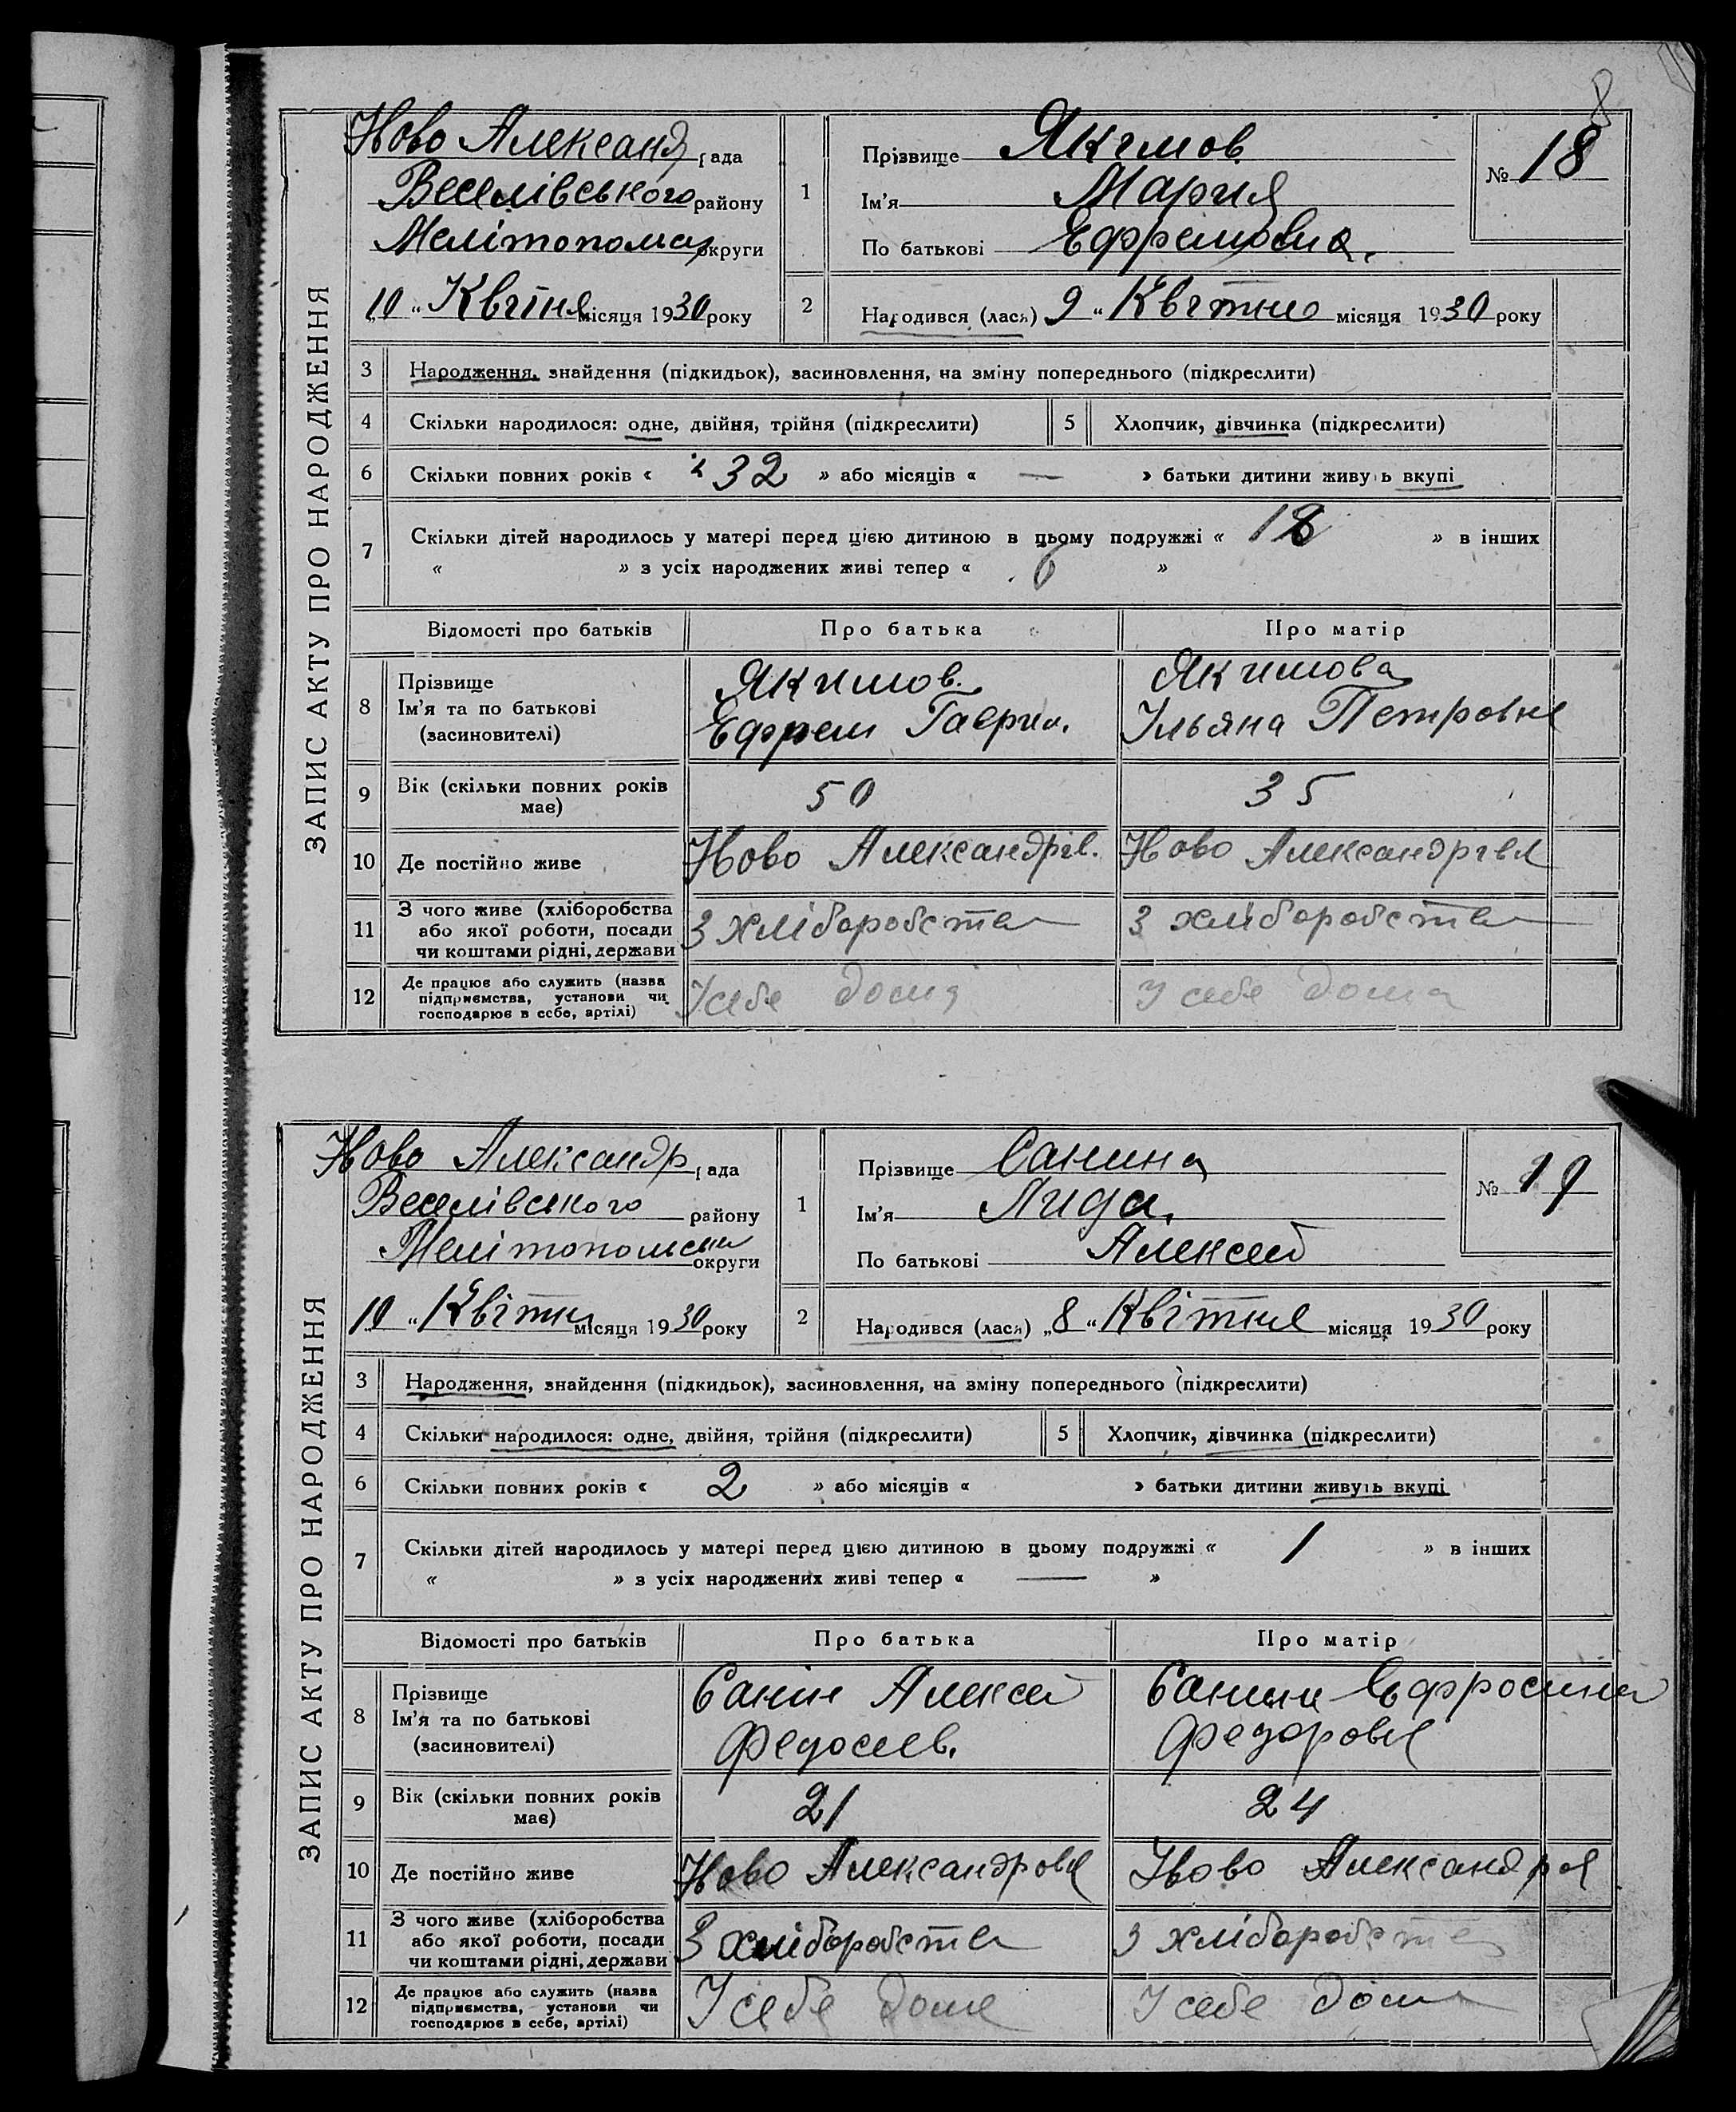 8
ЗАПИС АКТУ ПРО НАРОДЖЕННЯ
Ново Александ рада
Веселівського району
Мелітопольс округи
„10“ Квітня місяця 1930 року
1 Прізвище Якимов
Ім'я Мария
По батькові Ефремовна.
№ 18
2 Народився (лася) 9 “ Квітня місяця 1930 року
3 Народження, знайдення (підкидьок), засиновлення, на зміну попереднього (підкреслити)
4 Скільки народилося: одне, двійня, трійня (підкреслити) 5 Хлопчик, дівчинка (підкреслити)
6 Скільки повних років « 32 » або місяців « — » батьки дитини живуть вкупі
7 Скільки дітей народилось у матері перед цією дитиною в цьому подружжі « » в інших
« » з усіх народжених живі тепер « 6 »
Відомості про батьків Про батька Про матір
8 Прізвище Ім'я та по батькові (засиновителі)
Якимов. Ефрем Гаврил.
Якимова Ульяна Петровня
9 Вік (скільки повних років має) 50 35
10 Де постійно живе Ново Александрів. Ново Александрівя
11 З чого живе (хліборобства або якої роботи, посади чи коштами рідні, держави
З хліборобства З хліборобства
12 Де працює або служить (назва підприємства, установи чи господарює в себе, артілі)
У себе дома У себе дома
ЗАПИС АКТУ ПРО НАРОДЖЕННЯ
Ново Александр рада
Веселівського району
Мелітопольськ округи
10 “ Квітня місяця 1930 року
1 Прізвище Санина
Ім'я Лида.
По батькові Алексей
№ 19
2 Народився (лася) „8“ Квітня місяця 1930 року
3 Народження, знайдення (підкидьок), засиновлення, на зміну попереднього (підкреслити)
4 Скільки народилося: одне, двійня, трійня (підкреслити) 5 Хлопчик, дівчинка (підкреслити)
6 Скільки повних років « 2 » або місяців « » батьки дитини живуть вкупі
7 Скільки дітей народилось у матері перед цією дитиною в цьому подружжі « 1 » в інших
« » з усіх народжених живі тепер « — »
Відомості про батьків Про батька Про матір
8 Прізвище Ім'я та по батькові (засиновителі)
Санін Алексей Федосеев.
Санина Ефросиния Федоровя
9 Вік (скільки повних років має) 21 24
10 Де постійно живе Ново Александровя Ново Александря
11 З чого живе (хліборобства або якої роботи, посади чи коштами рідні, держави
З хліборобства З хліборобства
12 Де працює або служить (назва підприємства, установи чи господарює в себе, артілі)
У себе доме У себе дома